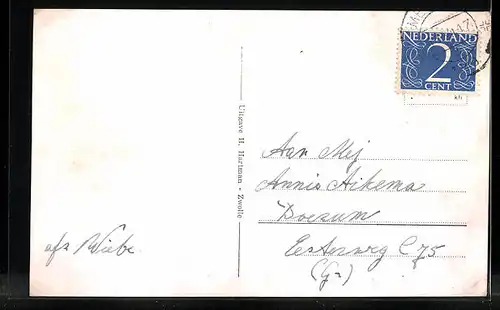 NEDERLAND
2
CENT
Uitgave H. Hartman • Zwolle
Aan Mej
Annie Aikema
Doezum
Eesterweg C 75
(Gr)
afz Wiebe